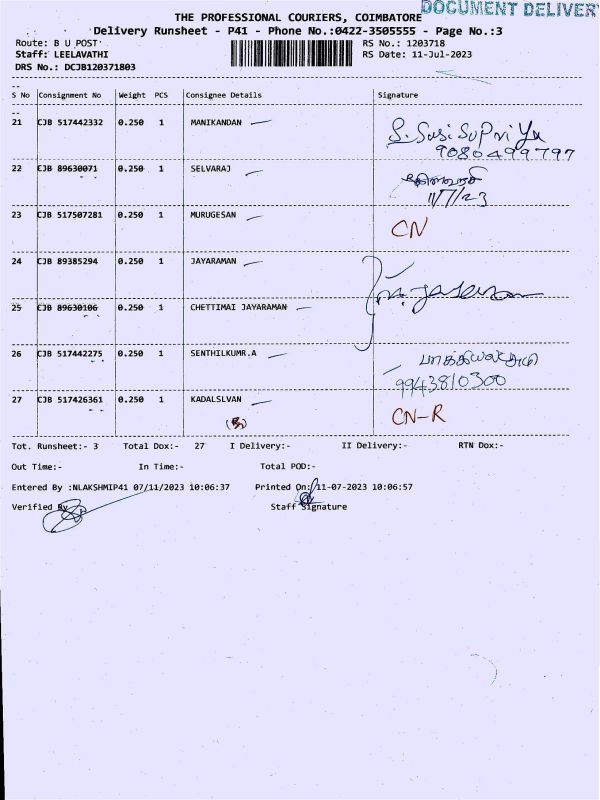 DOCUMENT DELIVERY
THE PROFESSIONAL COURIERS, COIMBATORE
Delivery Runsheet - P41 - Phone No.:0422-3505555 - Page No.:3
Route: B U POST
RS No.: 1203718
Staff: LEELAVATHI
RS Date: 11-Jul-2023
DRS No.: DCJB120371803
S No Consignment No Weight PCS Consignee Details Signature
21 CJB 517442332 0.250 1 MANIKANDAN S. Susi Supriya
9080499797
22 CJB 89630071 0.250 1 SELVARAJ
11/7/23
23 CJB 517507281 0.250 1 MURUGESAN CN
24 CJB 89385294 0.250 1 JAYARAMAN
25 CJB 89630106 0.250 1 CHETTIMAI JAYARAMAN
26 CJB 517442275 0.250 1 SENTHILKUMR.A
9943810300
27 CJB 517426361 0.250 1 KADALSLVAN CN-R
(R)
Tot. Runsheet:- 3 Total Dox:- 27 I Delivery:- II Delivery:- RTN Dox:-
Out Time:- In Time:- Total POD:-
Entered By :NLAKSHMIP41 07/11/2023 10:06:37 Printed On:/11-07-2023 10:06:57
Verified By
Staff Signature